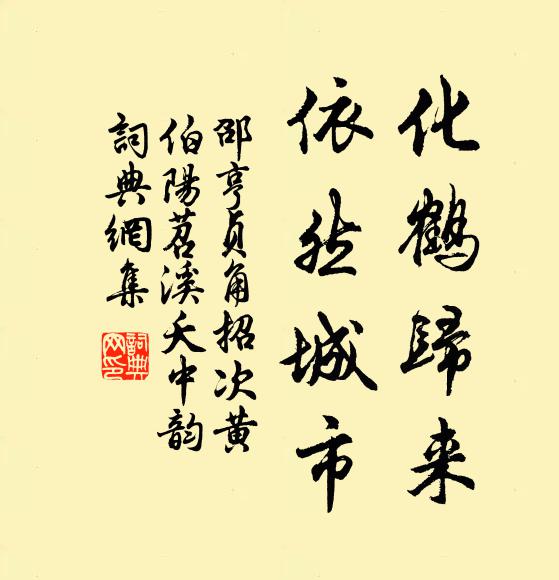 化鹤歸来
依然城市
邵亨貞角招次黄
伯陽苕溪夭中韵
詞典網集
詞典網印